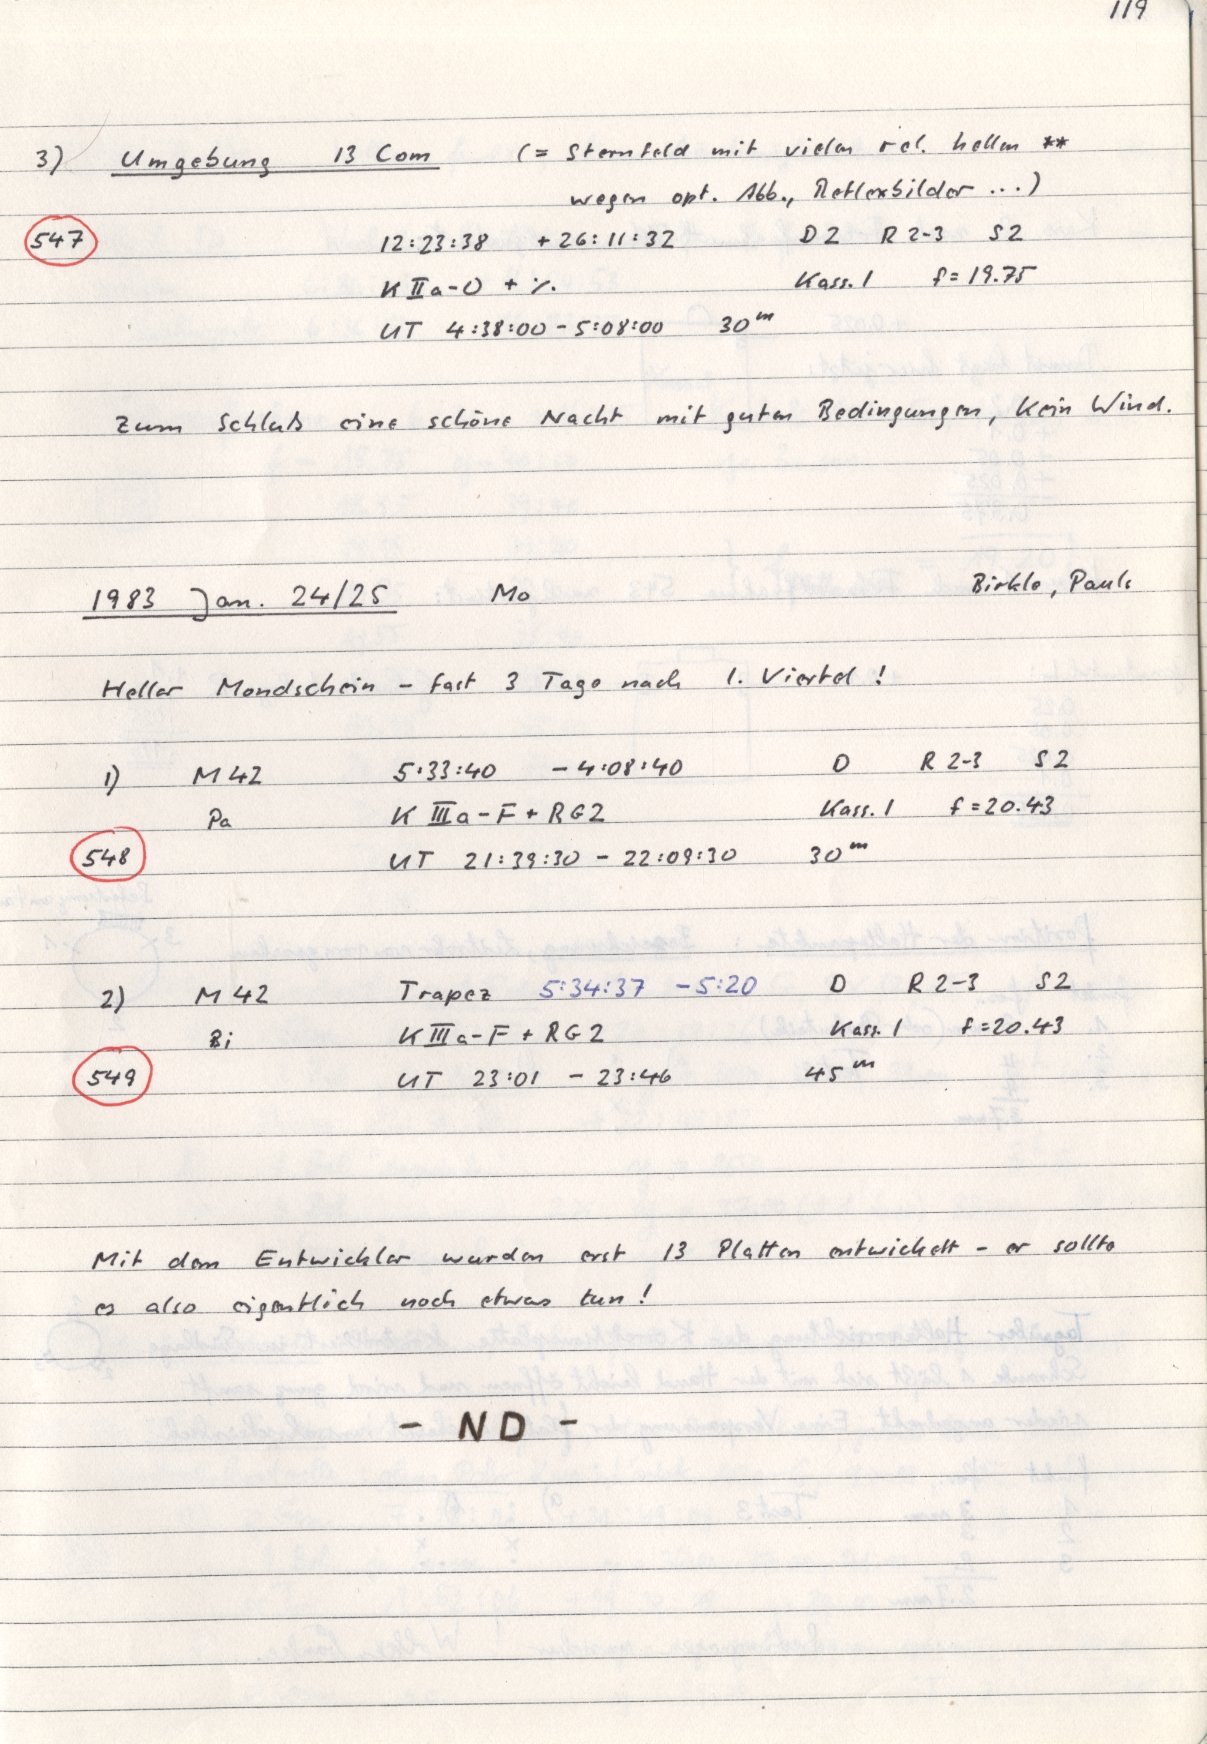 119
3) Umgebung 13 Com (= Sternfeld mit vielen rel. hellen **
wegen opt. Abb., Reflexbilder ...)
547 12:23:38 +26:11:32 D2 R 2-3 S2
K IIa-O + %. Kass. 1 f=19.75
UT 4:38:00 - 5:08:00 30m
Zum Schluß eine schöne Nacht mit guten Bedingungen, kein Wind.
1983 Jan. 24/25 Mo Birkle, Pauls
Heller Mondschein - fast 3 Tage nach 1. Viertel!
1) M 42 5:33:40 -4:08:40 D R 2-3 S2
Pa K IIIa-F + RG2 Kass. 1 f=20.43
548 UT 21:39:30 - 22:09:30 30m
2) M 42 Trapez 5:34:37 -5:20 D R 2-3 S2
Bi K IIIa-F + RG2 Kass. 1 f=20.43
549 UT 23:01 - 23:46 45m
Mit dem Entwickler wurden erst 13 Platten entwickelt - er sollte
es also eigentlich noch etwas tun!
- ND -